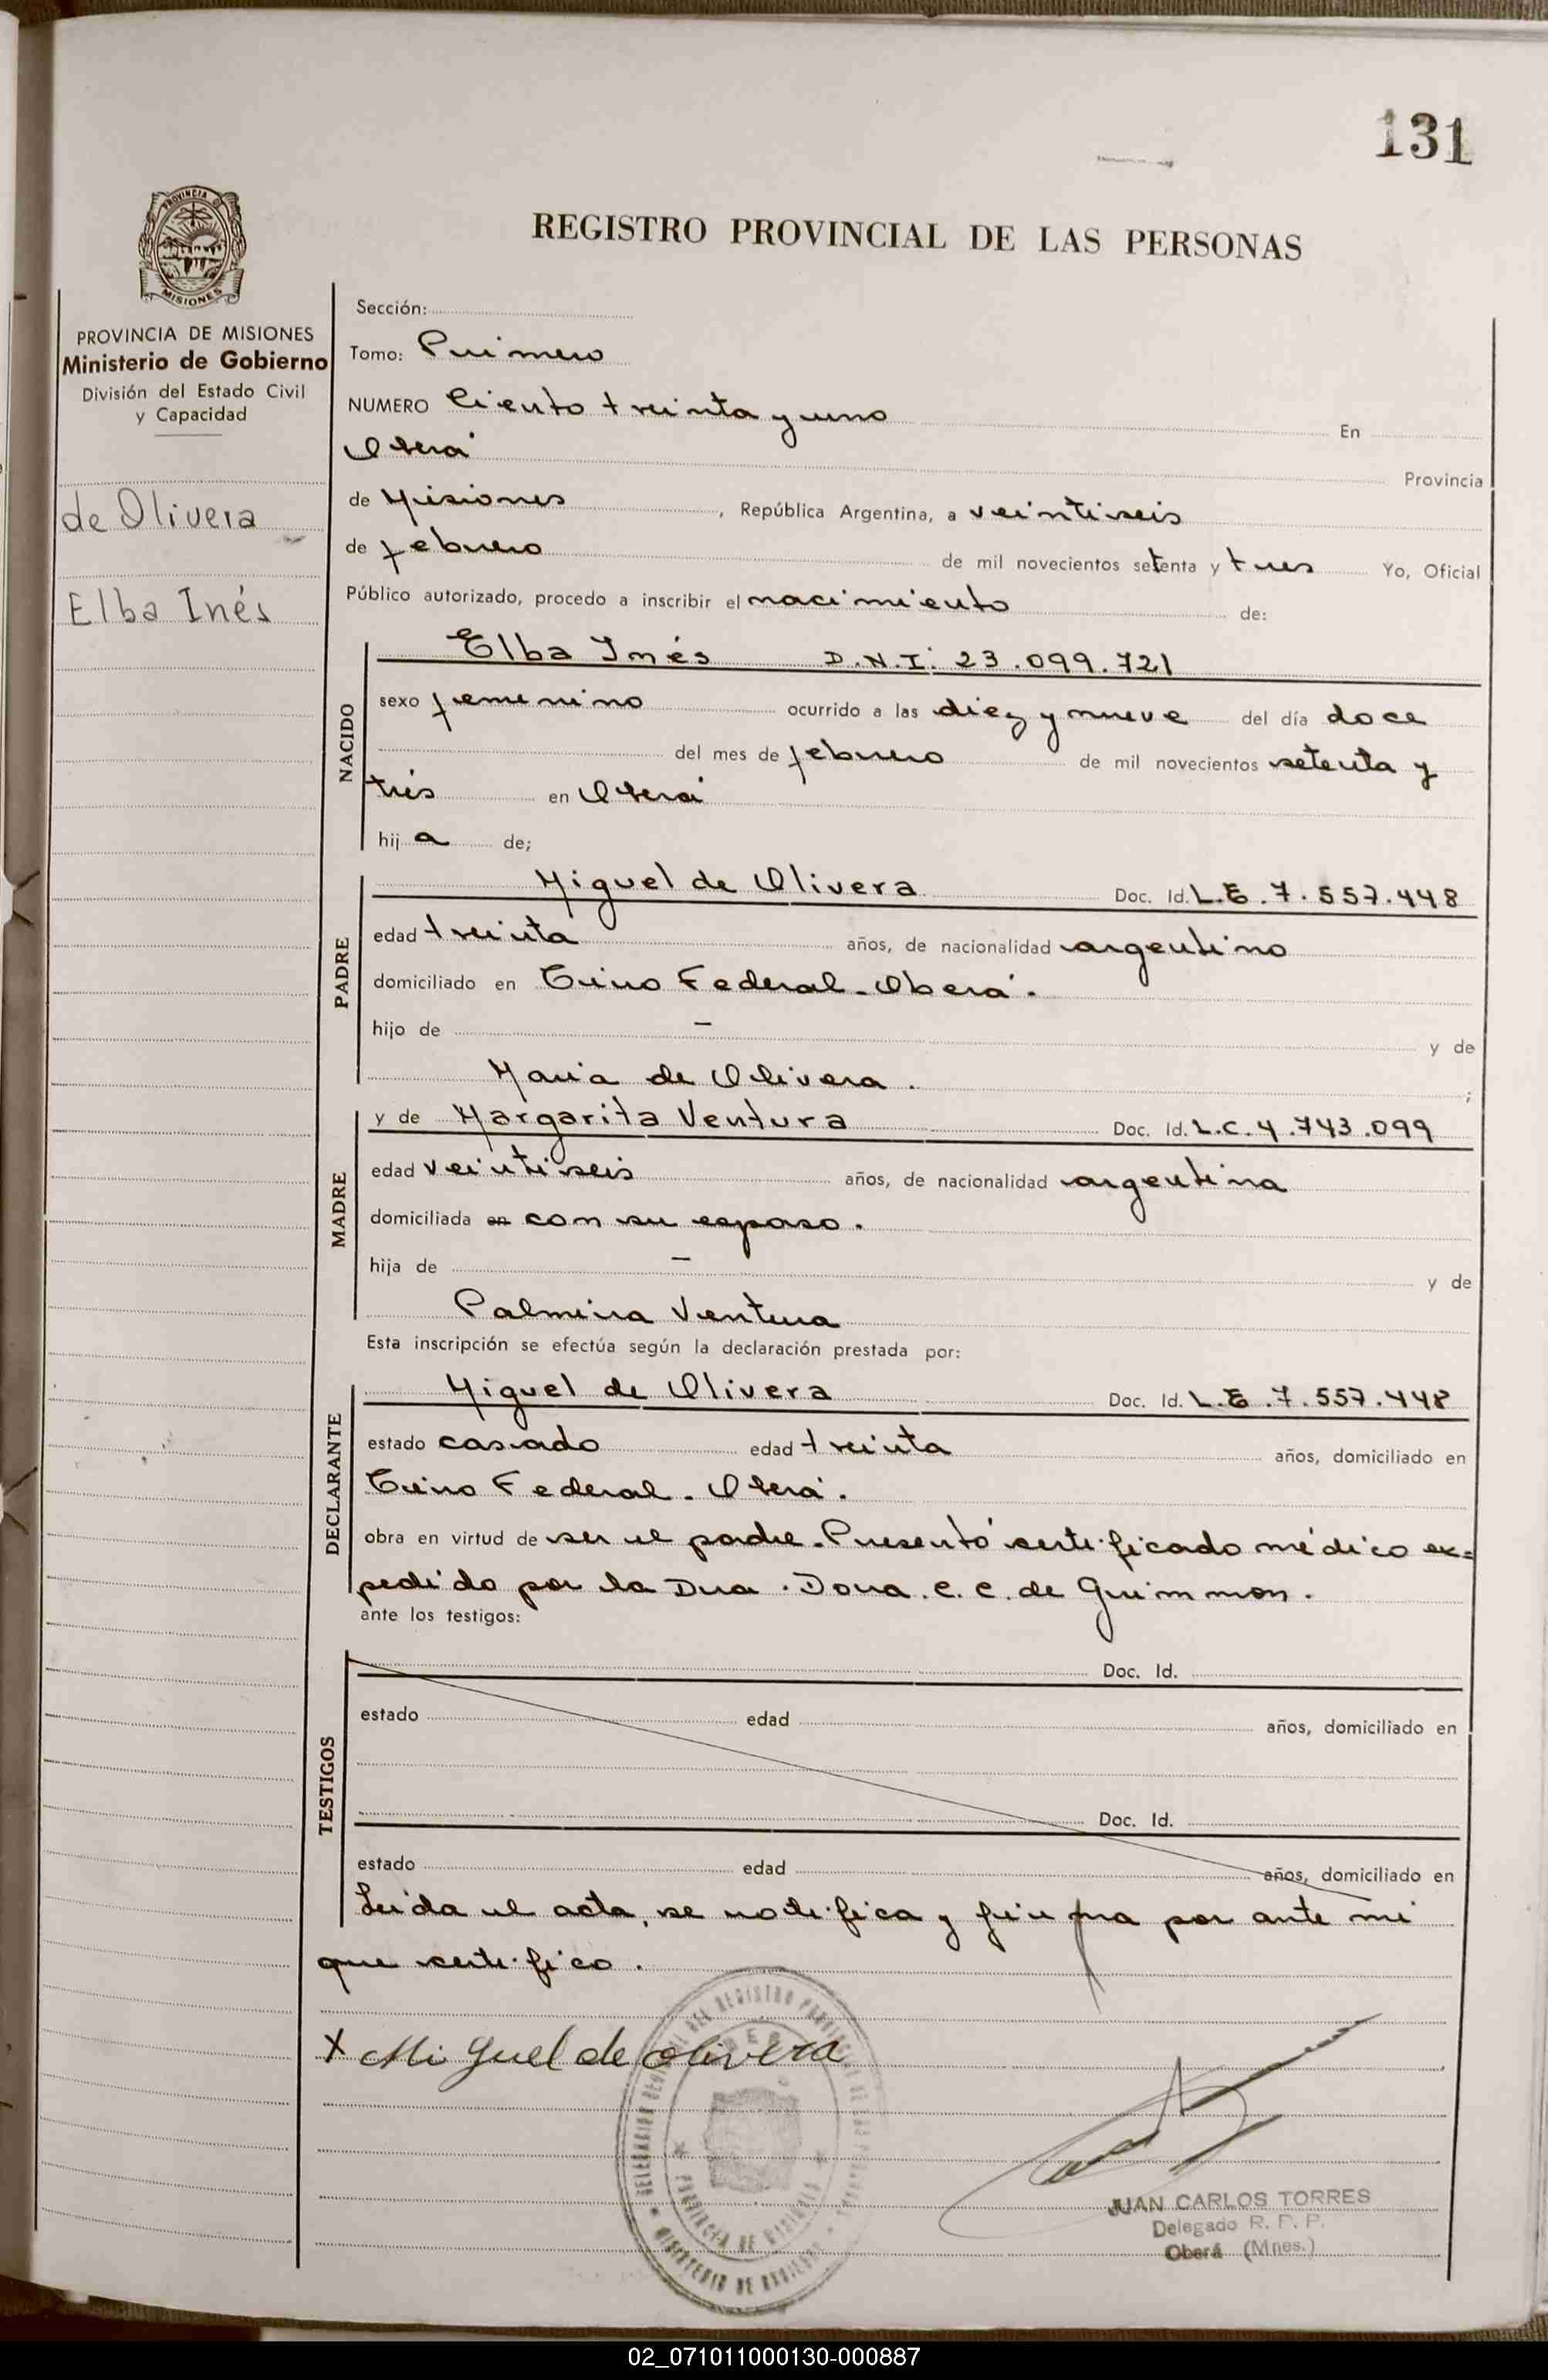 131
PROVINCIA
MISIONES
REGISTRO PROVINCIAL DE LAS PERSONAS
PROVINCIA DE MISIONES
Ministerio de Gobierno
División del Estado Civil
y Capacidad
de Olivera
Elba Inés
Sección:
Tomo: Primero
NUMERO Ciento treinta y uno En
Oberá Provincia
de Misiones, República Argentina, a veintiseis
de febrero de mil novecientos setenta y tres Yo, Oficial
Público autorizado, procedo a inscribir el nacimiento de:
NACIDO
Elba Inés D.N.I. 23.099.721
sexo femenino ocurrido a las diez y nueve del día doce
del mes de febrero de mil novecientos setenta y
tres en Oberá
hija de;
PADRE
Miguel de Olivera Doc. Id. L.E. 7.557.448
edad treinta años, de nacionalidad argentino
domiciliado en Cuiro Federal - Oberá.
hijo de – y de
Maria de Olivera. ;
MADRE
y de Margarita Ventura Doc. Id. L.C. 4.743.099
edad veintiseis años, de nacionalidad argentina
domiciliada en con su esposo.
hija de – y de
Palmira Ventura
Esta inscripción se efectúa según la declaración prestada por:
DECLARANTE
Miguel de Olivera Doc. Id. L.E. 7.557.448
estado casado edad treinta años, domiciliado en
Federal - Oberá.
obra en virtud de ser el padre. Presentó certificado médico ex=
pedido por la Dra. Dora. C. C. de
ante los testigos:
TESTIGOS
Doc. Id.
estado edad años, domiciliado en
Doc. Id.
estado edad años, domiciliado en
Leida el acta, se notifica y firma por ante mi
que certifico.
X Miguel de olivera
PROVINCIA DE MISIONES
JUAN CARLOS TORRES
Delegado R. P. P.
Oberá (Mnes.)
02_071011000130-000887